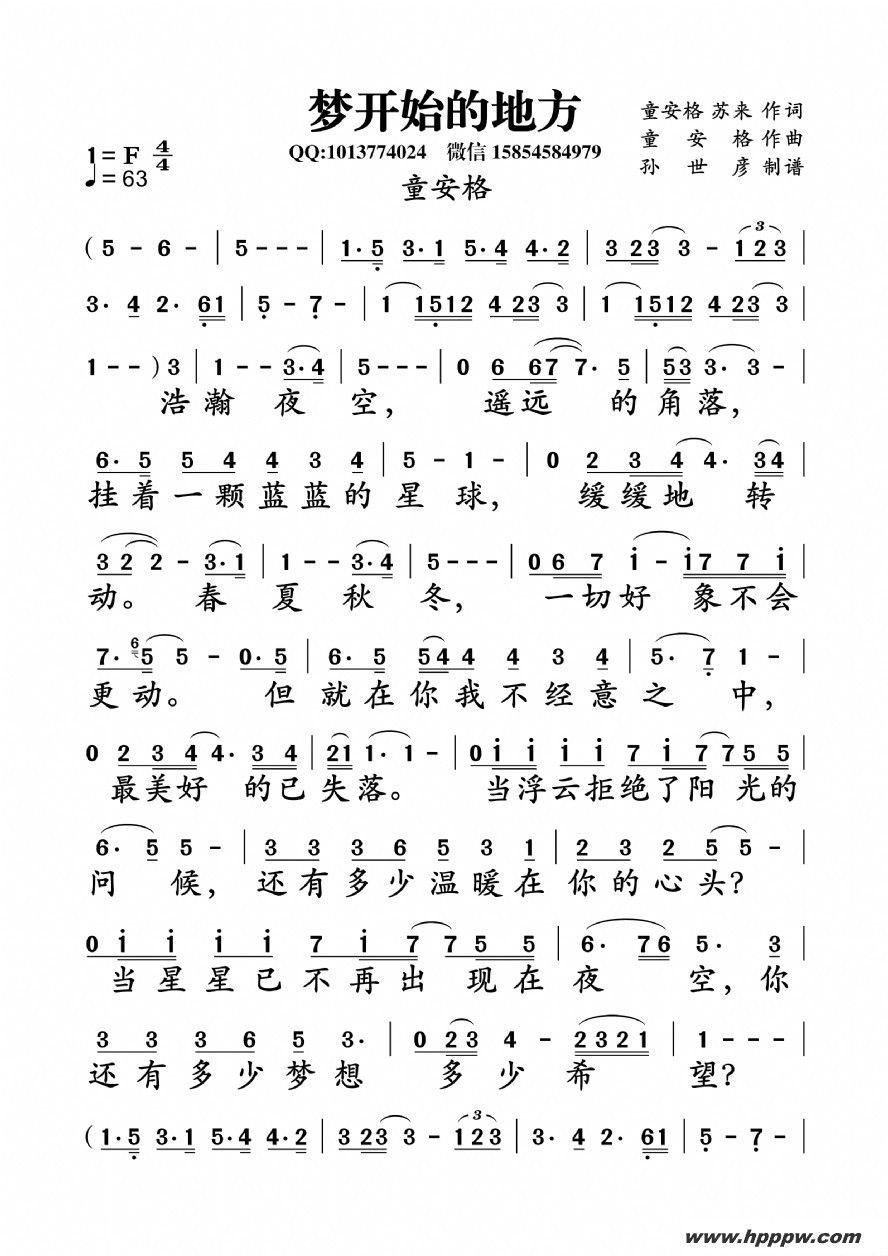 梦开始的地方
童安格 苏来 作词
1=F 4/4
QQ:1013774024 微信 15854584979
童 安 格 作曲
♩=63
童安格
孙 世 彦 制谱
( 5 - 6 - | 5 - - - | 1· 5 3· 1 5· 4 4· 2 | 3 23 3 - 123 |
3· 4 2· 61 | 5 - 7 - | 1 1512 4 23 3 | 1 1512 4 23 3 |
1 - - ) 3 | 1 - - 3·4 | 5 - - - | 0 6 67 7· 5 | 53 3· 3 - |
浩瀚 夜 空, 遥远 的角落,
6· 5 5 4 4 3 4 | 5 - 1 - | 0 2 3 4 4· 34 |
挂着一颗蓝蓝的星球, 缓缓地 转
3 2 2 - 3·1 | 1 - - 3·4 | 5 - - - | 0 6 7 i - i7 7 i |
动。 春 夏 秋 冬, 一切好 象不会
7· 6 5 5 - 0· 5 | 6· 5 54 4 4 3 4 | 5· 7 1 - |
更动。 但就在你我不经意之 中,
0 2 3 4 4· 3 4 | 21 1· 1 - | 0 i i i 7 i 7 75 5 |
最美好 的已失落。 当浮云拒绝了阳 光的
6· 5 5 - | 3 3 3 6 5 3 1 | 2 3 2 5 5 - |
问 候, 还有多少温暖在你的心头?
0 i i i 7 i 7 7 5 5 | 6· 76 5· 3 |
当星星已不再出 现在夜 空,你
3 3 3 6 5 3· | 0 23 4 - 2321 | 1 - - - |
还有多少梦想 多少希 望?
( 1·5 3·1 5·4 4·2 | 3 23 3 - 123 | 3· 4 2· 61 | 5 - 7 - |
www.hpppw.com